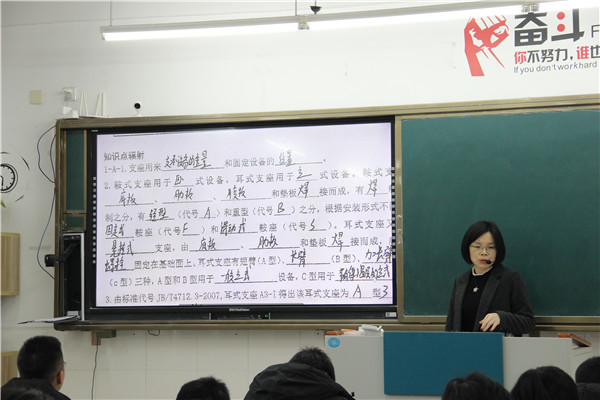 奋斗 F
你不努力,谁也
If you don't work hard
知识点辐射
1-A-1.支座用来 支承设备的重量 和固定设备的 位置 。
2.鞍式支座用于 卧 式设备,耳式支座用于 立 式设备,鞍式支
底板 、 肋板 、 腹板 和垫板 焊 接而成,有 焊 制
制之分,有 轻型 (代号 A )和重型(代号 B )之分,根据安装形式不同
固定式 鞍座(代号 F )和 滑动式 鞍座(代号 S )。耳式支座又
悬挂式 支座,由 底板 、 肋板 和垫板 焊 接而成,用
固定在基础面上,耳式支座有短臂(A型)、 长臂 (B型)、
(C型)三种,A型和B型用于 一般立式 设备,C型用于
3.由标准代号JB/T4712.3-2007,耳式支座A3-I得出该耳式支座为 A 型 3